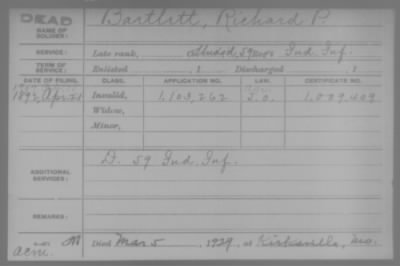 DEAD
NAME OF SOLDIER: Bartlett, Richard P.
SERVICE: Late rank, 59 Ind. Inf.
TERM OF SERVICE: Enlisted , 1 Discharged , 1
DATE OF FILING. CLASS. APPLICATION NO. LAW. CERTIFICATE NO.
1892, Apr. 21 Invalid, 1,103,262 1,009,409
Widow,
Minor,
ADDITIONAL SERVICES: D. 59 Ind. Inf.
REMARKS:
Died Mar 5, 1929, at Kirksville, Mo.
acm.